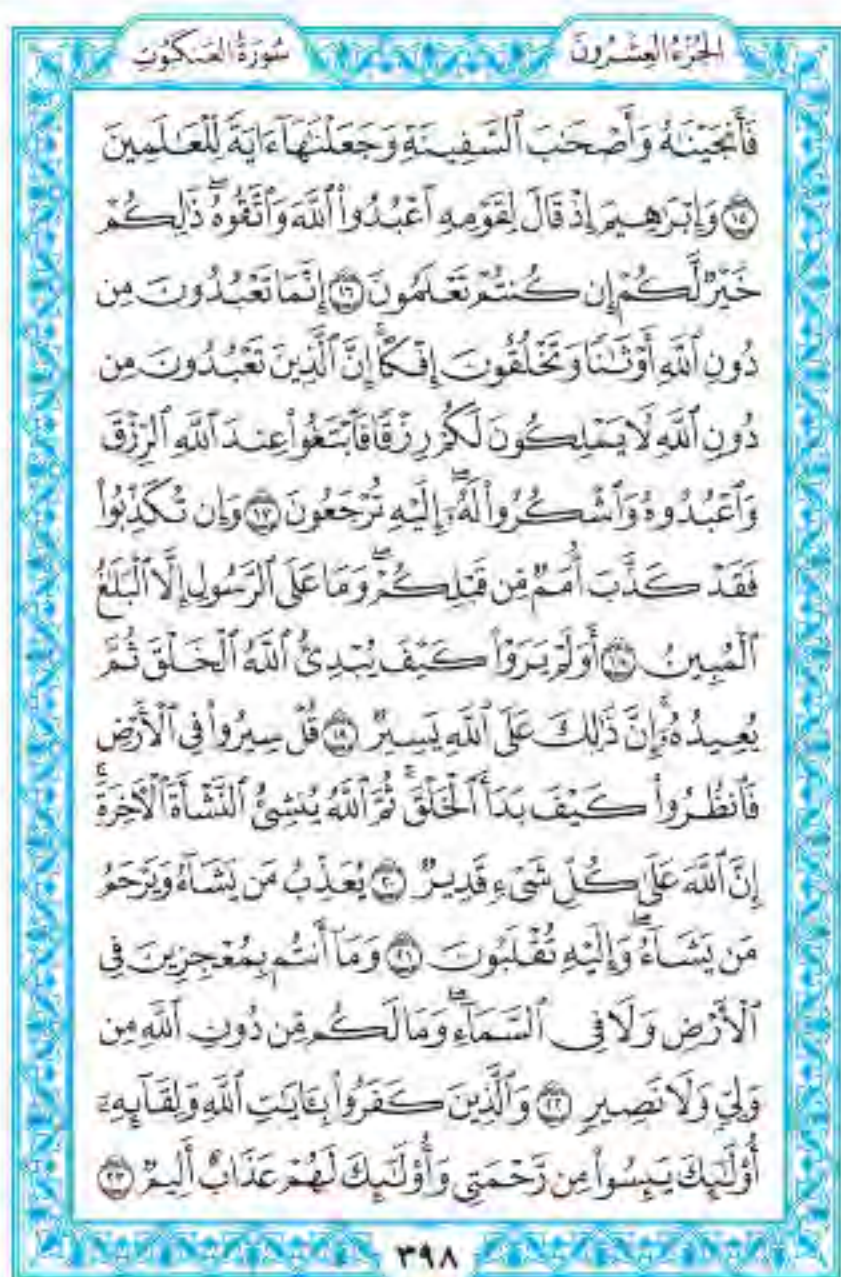 الجزء العشرون
سورة العنكبوت
فَأَنجَيْنَٰهُ وَأَصْحَٰبَ ٱلسَّفِينَةِ وَجَعَلْنَٰهَآ ءَايَةً لِّلْعَٰلَمِينَ
١٥ وَإِبْرَٰهِيمَ إِذْ قَالَ لِقَوْمِهِ ٱعْبُدُوا۟ ٱللَّهَ وَٱتَّقُوهُ ۖ ذَٰلِكُمْ
خَيْرٌ لَّكُمْ إِن كُنتُمْ تَعْلَمُونَ ١٦ إِنَّمَا تَعْبُدُونَ مِن
دُونِ ٱللَّهِ أَوْثَٰنًا وَتَخْلُقُونَ إِفْكًا ۚ إِنَّ ٱلَّذِينَ تَعْبُدُونَ مِن
دُونِ ٱللَّهِ لَا يَمْلِكُونَ لَكُمْ رِزْقًا فَٱبْتَغُوا۟ عِندَ ٱللَّهِ ٱلرِّزْقَ
وَٱعْبُدُوهُ وَٱشْكُرُوا۟ لَهُۥٓ ۖ إِلَيْهِ تُرْجَعُونَ ١٧ وَإِن تُكَذِّبُوا۟
فَقَدْ كَذَّبَ أُمَمٌ مِّن قَبْلِكُمْ ۖ وَمَا عَلَى ٱلرَّسُولِ إِلَّا ٱلْبَلَٰغُ
ٱلْمُبِينُ ١٨ أَوَلَمْ يَرَوْا۟ كَيْفَ يُبْدِئُ ٱللَّهُ ٱلْخَلْقَ ثُمَّ
يُعِيدُهُۥٓ ۚ إِنَّ ذَٰلِكَ عَلَى ٱللَّهِ يَسِيرٌ ١٩ قُلْ سِيرُوا۟ فِى ٱلْأَرْضِ
فَٱنظُرُوا۟ كَيْفَ بَدَأَ ٱلْخَلْقَ ۚ ثُمَّ ٱللَّهُ يُنشِئُ ٱلنَّشْأَةَ ٱلْءَاخِرَةَ ۚ
إِنَّ ٱللَّهَ عَلَىٰ كُلِّ شَىْءٍ قَدِيرٌ ٢٠ يُعَذِّبُ مَن يَشَآءُ وَيَرْحَمُ
مَن يَشَآءُ ۖ وَإِلَيْهِ تُقْلَبُونَ ٢١ وَمَآ أَنتُم بِمُعْجِزِينَ فِى
ٱلْأَرْضِ وَلَا فِى ٱلسَّمَآءِ ۖ وَمَا لَكُم مِّن دُونِ ٱللَّهِ مِن
وَلِىٍّ وَلَا نَصِيرٍ ٢٢ وَٱلَّذِينَ كَفَرُوا۟ بِـَٔايَٰتِ ٱللَّهِ وَلِقَآئِهِۦٓ
أُو۟لَٰٓئِكَ يَئِسُوا۟ مِن رَّحْمَتِى وَأُو۟لَٰٓئِكَ لَهُمْ عَذَابٌ أَلِيمٌ ٢٣
٣٩٨